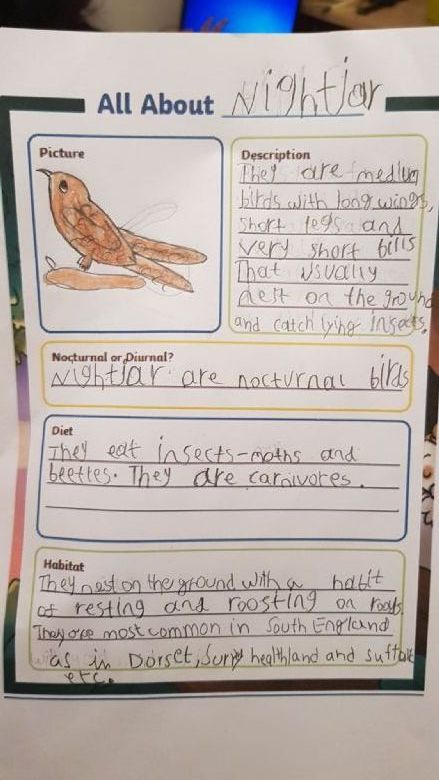 All About Nightjar
Picture
Description
They are medium
birds with long wings,
short legs and
very short bills
That usually
nest on the ground
and catch lying insects.
Nocturnal or Diurnal?
Nightjar are nocturnal birds
Diet
They eat insects-moths and
beetles. They are carnivores.
Habitat
They nest on the ground with a habit
of resting and roosting on roads
They are most common in South England
as in Dorset, Surry healhland and suffolk
etc.